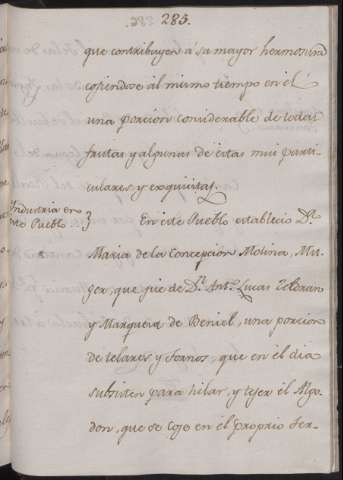 283.
que contribuyen á sa mayor hermosura
cojiendose ál mismo tiempo en él
una porcion considerable de todas
frutas y algunas de estas mui parti-
culares y exquisitas.
Industria en
este Pueblo } En este Pueblo establecio D.ª
Maria de la Concepcion Molina, Mu-
ger, que fue de D.ⁿ Ant.º Lucas
y Marquesa de Beniel, una porcion
de telares y tornos, que en el dia
subsisten para hilar, y tejer el Algo-
don, que se coje en el proprio Ter-